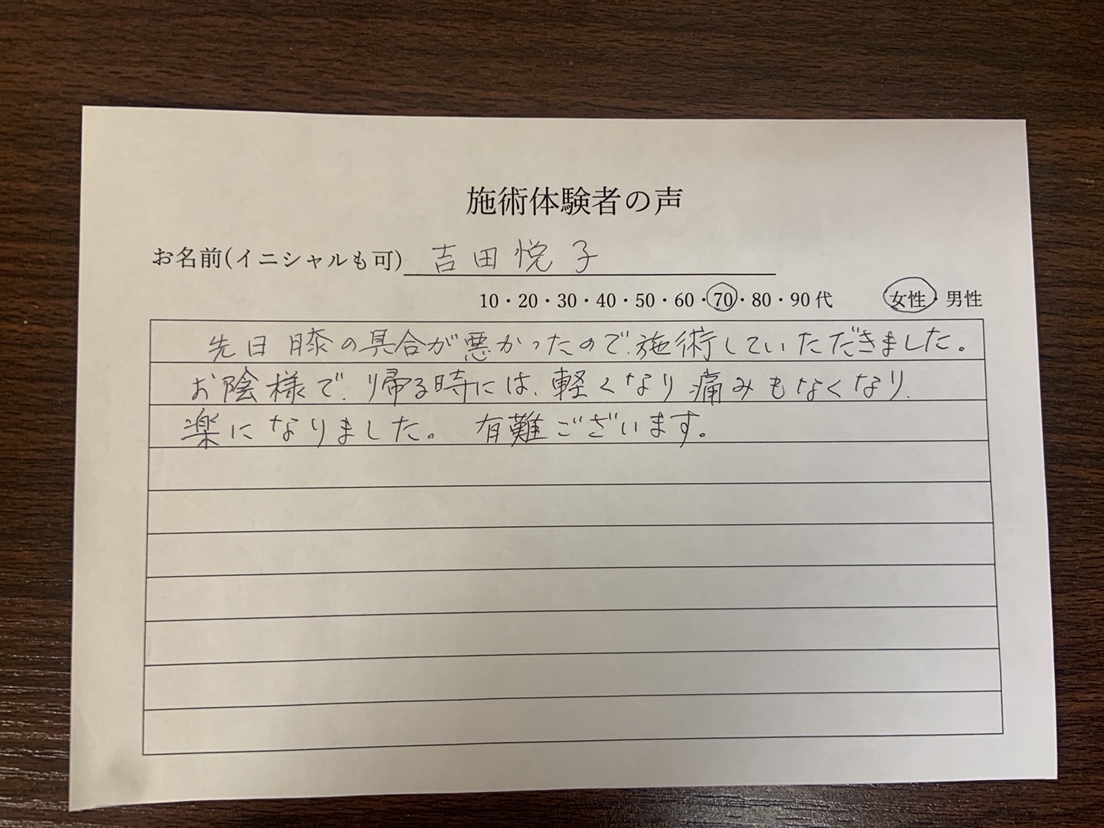 施術体験者の声
お名前(イニシャルも可) 吉田悦子
10・20・30・40・50・60・70・80・90代 女性・男性
先日膝の具合が悪かったので、施術していただきました。
お陰様で、帰る時には、軽くなり痛みもなくなり、
楽になりました。 有難ございます。